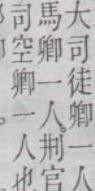 大司徒卿一人
馬卿一人。荆官
司空卿一人也